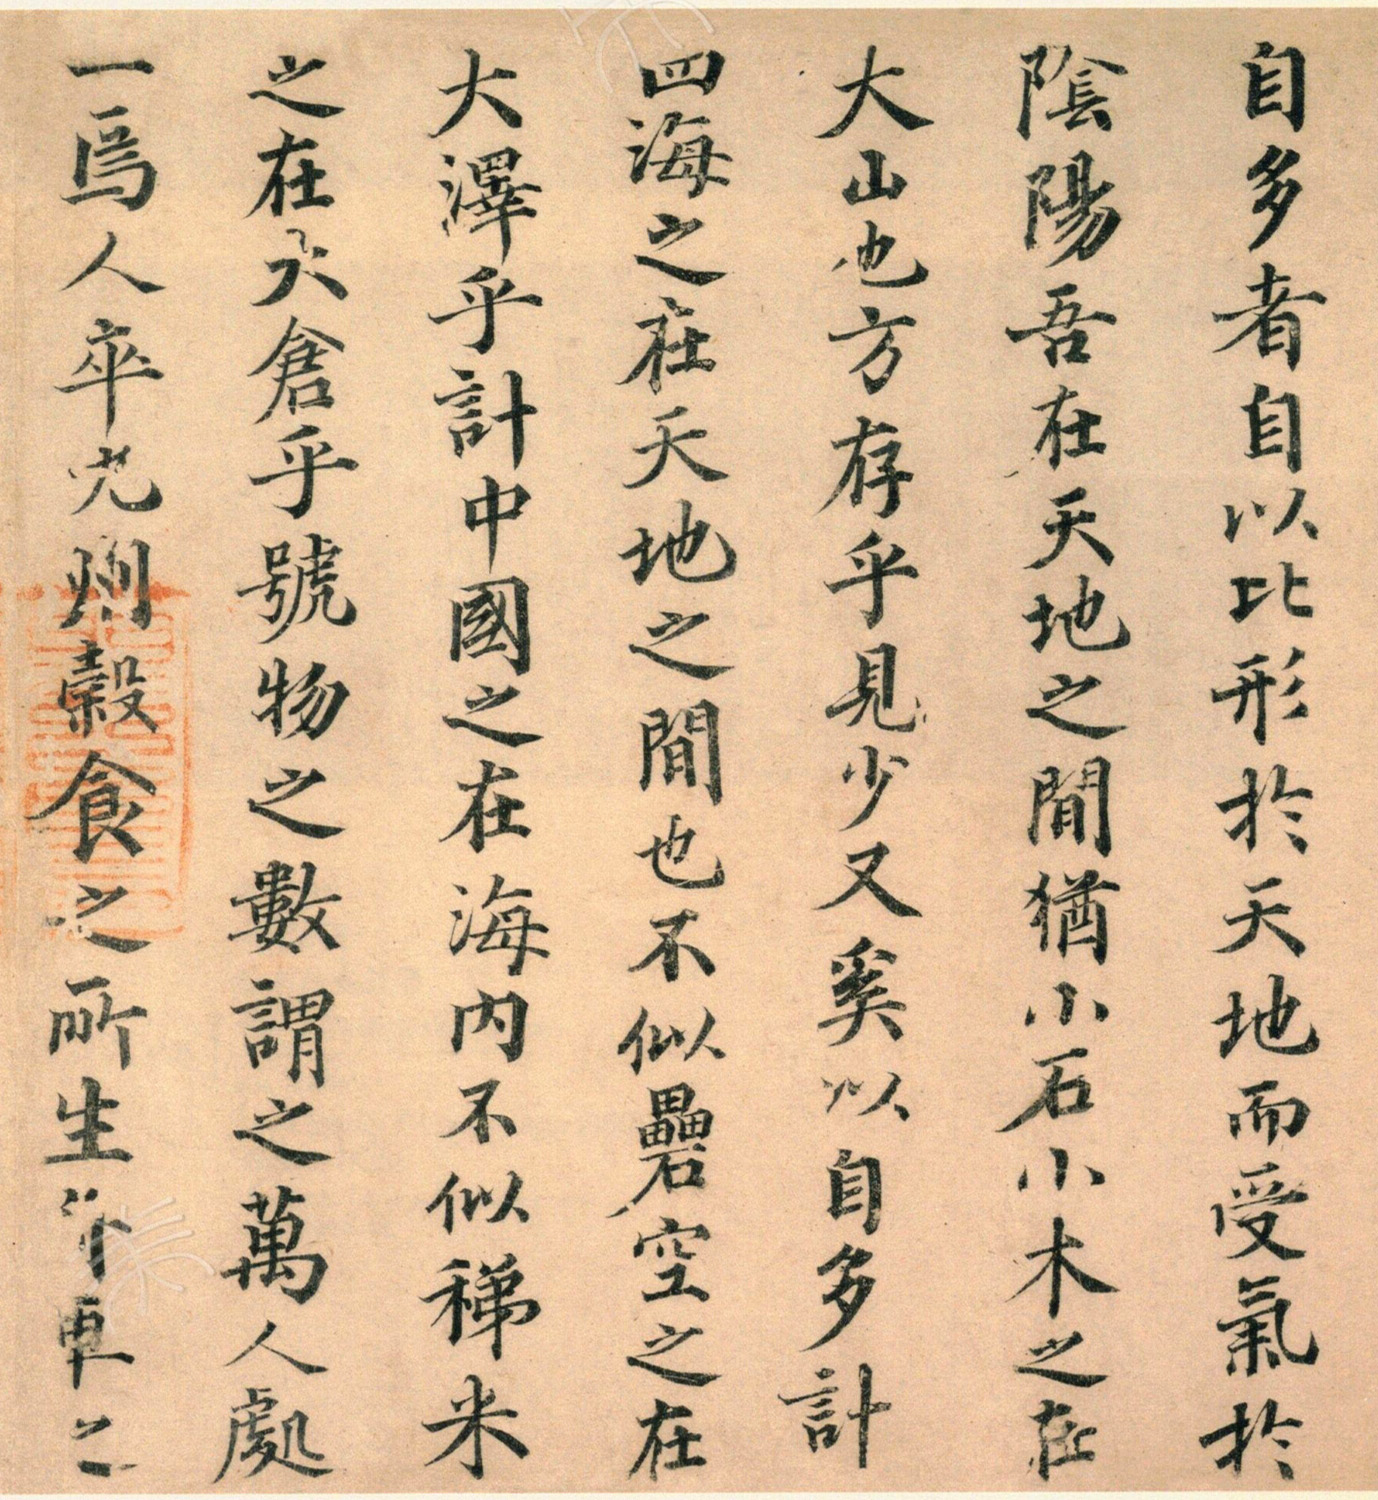 自多者自以比形於天地而受氣於
陰陽吾在天地之閒猶小石小木之在
大山也方存乎見少又奚以自多計
四海之在天地之閒也不似礨空之在
大澤乎計中國之在海内不似稊米
之在大倉乎號物之數謂之萬人處
一焉人卒九州穀食之所生舟車之